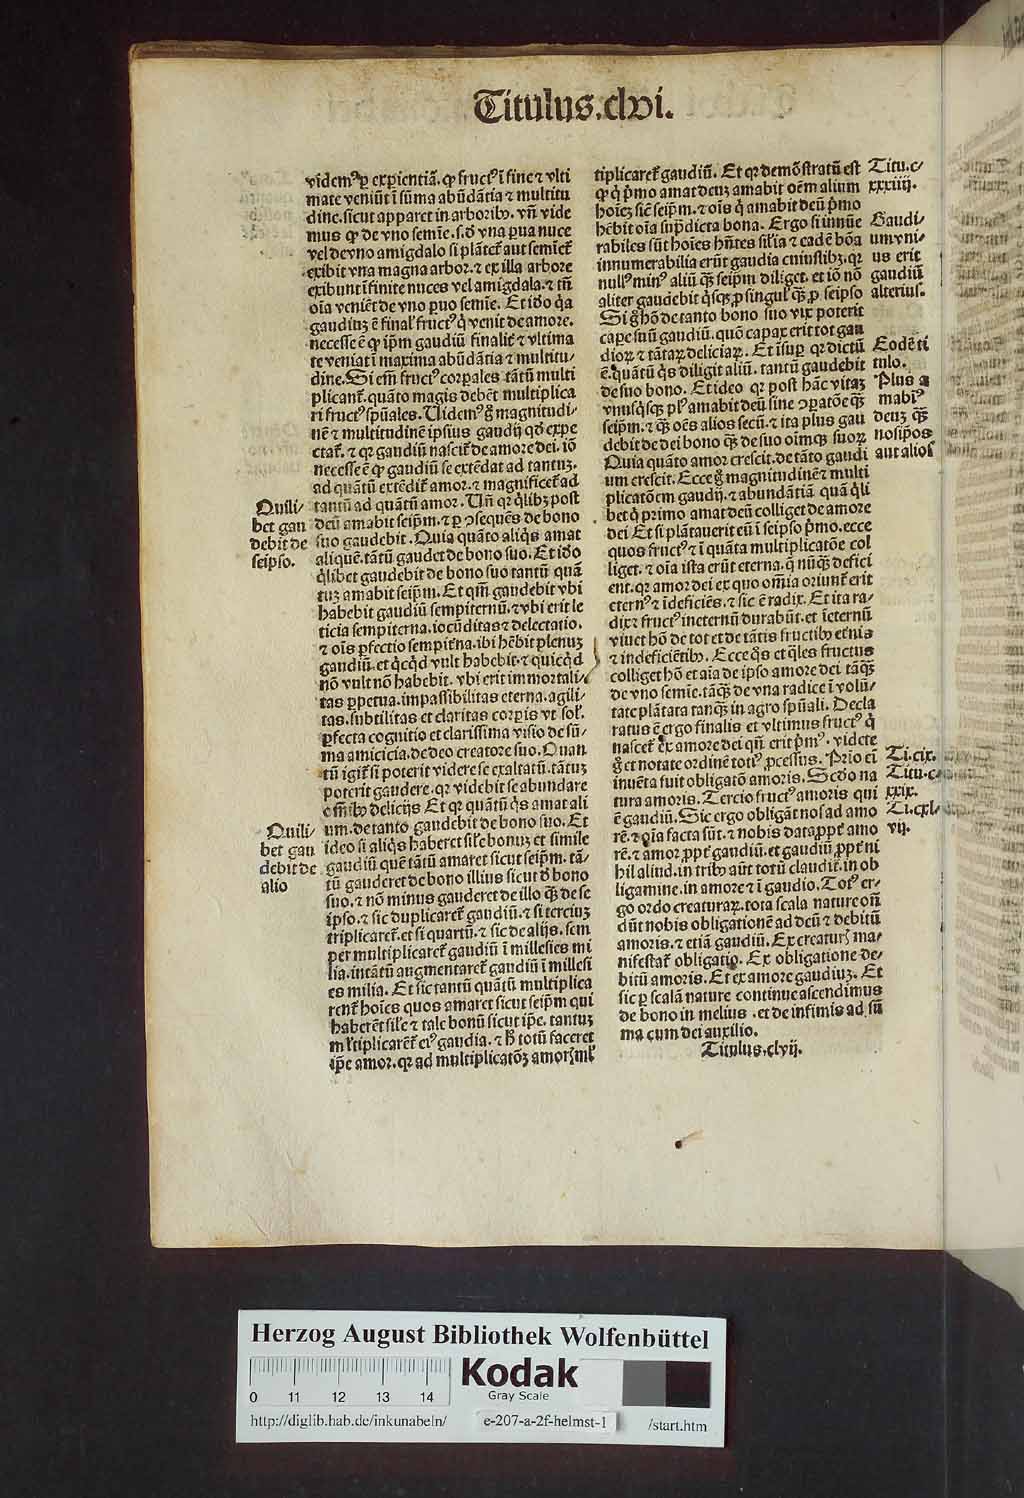 Titulus.clvi.
videmꝰ ꝑ experientiã. ꝙ fructꝰ ĩ fine ⁊ vlti
mate veniũt ĩ sũma abũdãtia ⁊ multitu
dine. sicut apparet in arboribꝰ. vñ vide
mus ꝙ de vno semĩe. s. ð vna parua nuce
vel de vno amigdalo si plãtet᷑ aut semiet᷑
exibit vna magna arbor. ⁊ ex illa arbore
exibunt ĩfinite nuces vel amigdala. ⁊ tñ
oĩa veniẽt de vno paruo semĩe. Et iðo q̃a
gaudiuȝ ẽ final᷑ fructꝰ q̃ venit de amore.
necesse ẽ ꝙ ip̃m gaudiũ finalit᷑ ⁊ vltima
te veniat ĩ maxima abũdãtia ⁊ multitu/
dine. Si em̃ fructꝰ corpales tãtũ multi
plicant᷑. quãto magis debẽt multiplica
ri fructꝰ sp̃uales. Uidemꝰ g̊ magnitudi/
nẽ ⁊ multitudinẽ ipsius gaudij qð expe
ctat᷑. ⁊ qꝛ gaudiũ nascit᷑ de amore dei. iõ
necesse ẽ ꝙ gaudiũ se extẽdat ad tantuȝ.
ad quãtũ extẽdit᷑ amor. ⁊ magnificet᷑ ad
Quili/
bet gau
debit de
seipso.
tantũ ad quãtũ amor. Uñ qꝛ q̃libȝ post
deũ amabit seip̃m. ⁊ ꝑ ↄsequẽs de bono
suo gaudebit. Quia quãto aliq̃s amat
aliquẽ. tãtũ gaudet de bono suo. Et iðo
q̃libet gaudebit de bono suo tantũ quã
tuȝ amabit seip̃m. Et qm̃ gaudebit vbi
habebit gaudiũ sempiternũ. ⁊ vbi erit le
ticia sempiterna. iocũditas ⁊ delectatio.
⁊ oĩs ꝑfectio sempit᷑na. ibi hẽbit plenuȝ
gaudiũ. et q̃cq̃d vult habebit. ⁊ quicq̃d
nõ vult nõ habebit. vbi erit immortali/
tas ꝑpetua. impassibilitas eterna. agili/
tas. subtilitas et claritas corꝑis vt sol᷑.
ꝑfecta cognitio et clarissima visio de sũ/
ma amicicia. de deo creatore suo. Quan
tũ igit᷑ si poterit videre se exaltatũ. tãtuȝ
poterit gaudere. qꝛ videbit se abundare
om̃ibꝰ delicijs Et qꝛ quãtũ q̃s amat ali
Quili/
bet gau
debit de
alio
um. de tanto gaudebit de bono suo. Et
ideo si aliq̃s haberet sil᷑e bonuȝ et simile
gaudiũ quẽ tãtũ amaret sicut seip̃m. tã/
tũ gauderet de bono illius sicut ð bono
suo. ⁊ nõ minus gauderet de illo q̃ȝ de se
ipso. ⁊ sic duplicaret᷑ gaudiũ. ⁊ si terciuȝ
triplicaret᷑. et si quartũ. ⁊ sic de alijs. sem
per multiplicaret᷑ gaudiũ ĩ millesies mi
lia. intãtũ augmentaret᷑ gaudiũ ĩ millesi
es milia. Et sic tantũ quãtũ multiplica
rent᷑ hoĩes quos amaret sicut seip̃m qui
haberẽt sil᷑e ⁊ tale bonũ sicut ip̃e. tantuȝ
ml᷑tiplicarẽt᷑ eiꝰ gaudia. ⁊ h̊ totũ faceret
ip̃e amor. qꝛ ad multiplicatõȝ amorꝭ ml᷑
tiplicaret᷑ gaudiũ. Et qꝛ demõstratũ est
ꝙ q̃ p̃mo amat deuȝ amabit oẽm alium
hoĩeȝ sic̃ seip̃m. ⁊ oĩs q̃ amabit deũ p̃mo
hẽbit oĩa sup̃dicta bona. Ergo si innũe
rabiles sũt hoĩes hñtes sil᷑ia ⁊ eadẽ bõa
innumerabilia erũt gaudia cuiuslibȝ. qꝛ
nullꝰ minꝰ aliũ q̃ȝ seip̃m diliget. et iõ nõ
aliter gaudebit q̃sqȝ ꝓ singul᷑ q̃ȝ ꝓ seipso
Si g̊ hõ de tanto bono suo vix poterit
capere suũ gaudiũ. quõ capax erit tot gau
dioꝝ ⁊ tãtaꝝ deliciaꝝ. Et ĩsuꝑ qꝛ dictũ
ẽ. quãtũ q̃s diligit aliũ. tantũ gaudebit
de suo bono. Et ideo qꝛ post hãc vitaȝ
vnusq̃sqȝ plꝰ amabit deũ sine ↄꝑatõe q̃ȝ
seip̃m. ⁊ q̃ȝ oẽs alios secũ. ⁊ ita plus gau
debit de dei bono q̃ȝ de suo oĩmqȝ suoꝝ
Quia quãto amor crescit. de tãto gaudi
um crescit. Ecce g̊ magnitudinẽ ⁊ multi
plicatõem gaudij. ⁊ abundãtiã quã q̃li
bet q̃ primo amat deũ colliget de amore
dei Et si plãtauerit eũ ĩ seipso p̃mo. ecce
quos fructꝰ ⁊ ĩ quãta multiplicatõe col
liget. ⁊ oĩa ista erũt eterna. q̃ nũq̃ȝ defici
ent. qꝛ amor dei ex quo om̃ia oriunt᷑ erit
eternꝰ ⁊ ĩdeficiẽs. ⁊ sic ẽ radix. Et ita ra/
dix ⁊ fructꝰ ineternũ durabũt. et ĩeternũ
viuet hõ de tot et de tãtis fructibꝰ et᷑nis
⁊ indeficiẽtibꝰ. Ecce q̃s et q̃les fructus
colliget hõ et aĩa de ipso amore dei tãq̃ȝ
de vno semĩe. tãq̃ȝ de vna radice ĩ volũ/
tate plãtata tanq̃ȝ in agro sp̃uali. Decla
ratus ẽ ergo finalis et vltimus fructꝰ q̃
nascet᷑ ex amore dei qñ erit p̃mꝰ. videte
g̊ et notate ordinẽ totiꝰ ꝓcessus. Prĩo eĩ
inuẽta fuit obligatõ amoris. Scðo na
tura amoris. Tercio fructꝰ amoris qui
ẽ gaudiũ. Sic ergo obligãt nos ad amo
rẽ. ⁊ oĩa facta sũt. ⁊ nobis data ꝓpt᷑ amo
rẽ. ⁊ amor ꝓpt᷑ gaudiũ. et gaudiũ ꝓpt᷑ ni
hil aliud. in tribꝰ aũt totũ claudit᷑. in ob
ligamine. in amore ⁊ ĩ gaudio. Totꝰ er/
go ordo creaturaꝝ. tota scala nature oñ
dũt nobis obligationẽ ad deũ ⁊ debitũ
amoris. ⁊ etiã gaudiũ. Ex creaturꝭ ma/
nifestat᷑ obligatio. Ex obligatione de/
bitũ amoris. Et ex amore gaudiuȝ. Et
sic ꝑ scalã nature continue ascendimus
de bono in melius. et de infimis ad sũ
ma cum dei auxilio.
Titulus.clvij.
Titu.c/
xxxiiij.
Gaudi/
um vni/
us erit
gaudiũ
alterius.
Eodẽ ti
tulo.
Plus a
mabiꝰ
deuȝ q̃ȝ
nosip̃os
aut alios
Ti.cix.
Titu.c/
xxix.
Ti.cxl/
vij.
Herzog August Bibliothek Wolfenbüttel
0 11 12 13 14
Kodak
Gray Scale
http://diglib.hab.de/inkunabeln/ e-207-a-2f-helmst-1 /start.htm